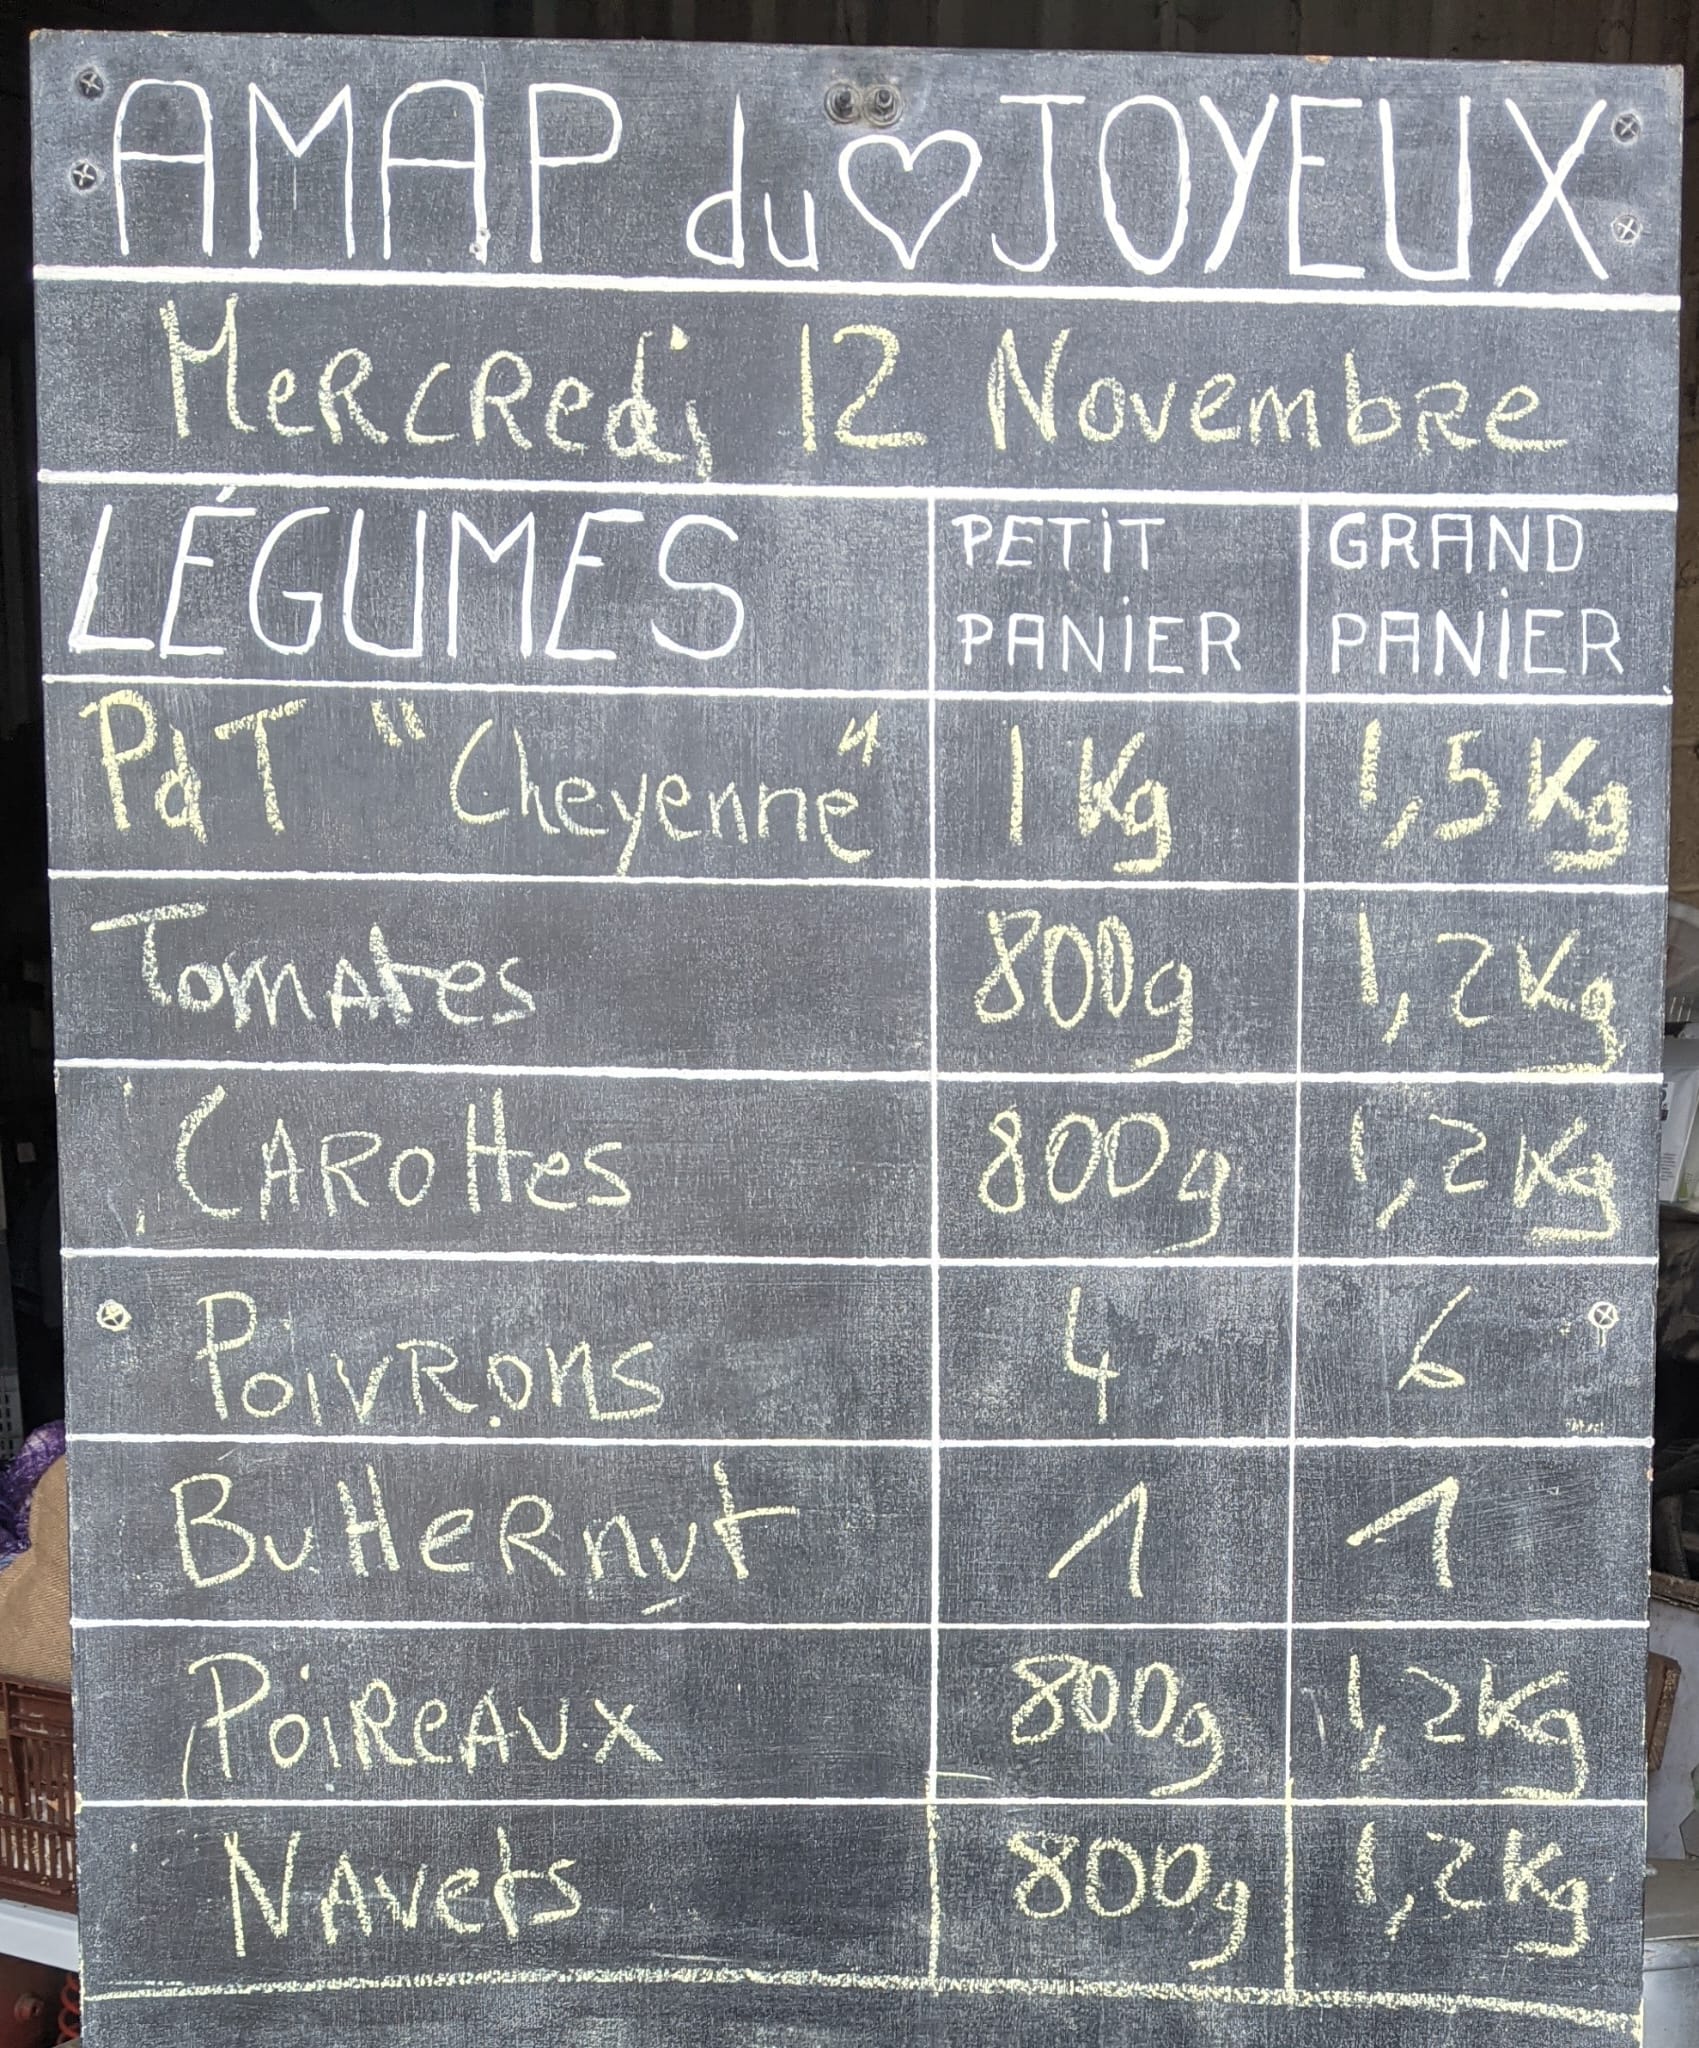 AMAP du ♡ JOYEUX
Mercredi 12 Novembre
LÉGUMES PETIT PANIER GRAND PANIER
PdT "Cheyenne" 1 Kg 1,5 Kg
Tomates 800g 1,2 Kg
Carottes 800g 1,2 Kg
Poivrons 4 6
Butternut 1 1
Poireaux 800g 1,2 Kg
Navets 800g 1,2 Kg